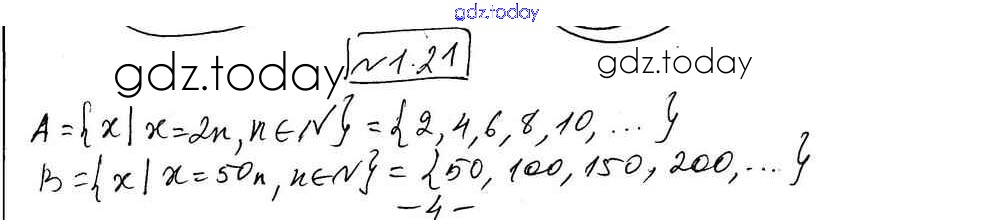 gdz.today
№1.21
gdz.today gdz.today
A={x|x=2n, n∈N}={2, 4, 6, 8, 10, ...}
B={x|x=50n, n∈N}={50, 100, 150, 200, ...}
-4-